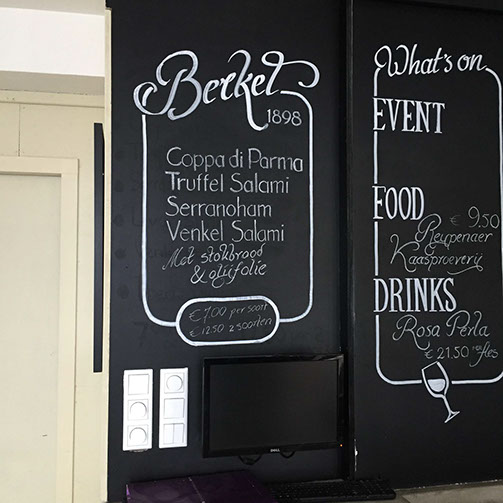 Berkel
1898
Coppa di Parma
Truffel Salami
Serranoham
Venkel Salami
Met stokbrood
& olijfolie
€ 7.00 per soort
€ 12.50 2 soorten
What's on
EVENT
FOOD
€ 9.50
Reypenaer
Kaasproeverij
DRINKS
Rosa Perla
€ 21.50 per fles
DELL